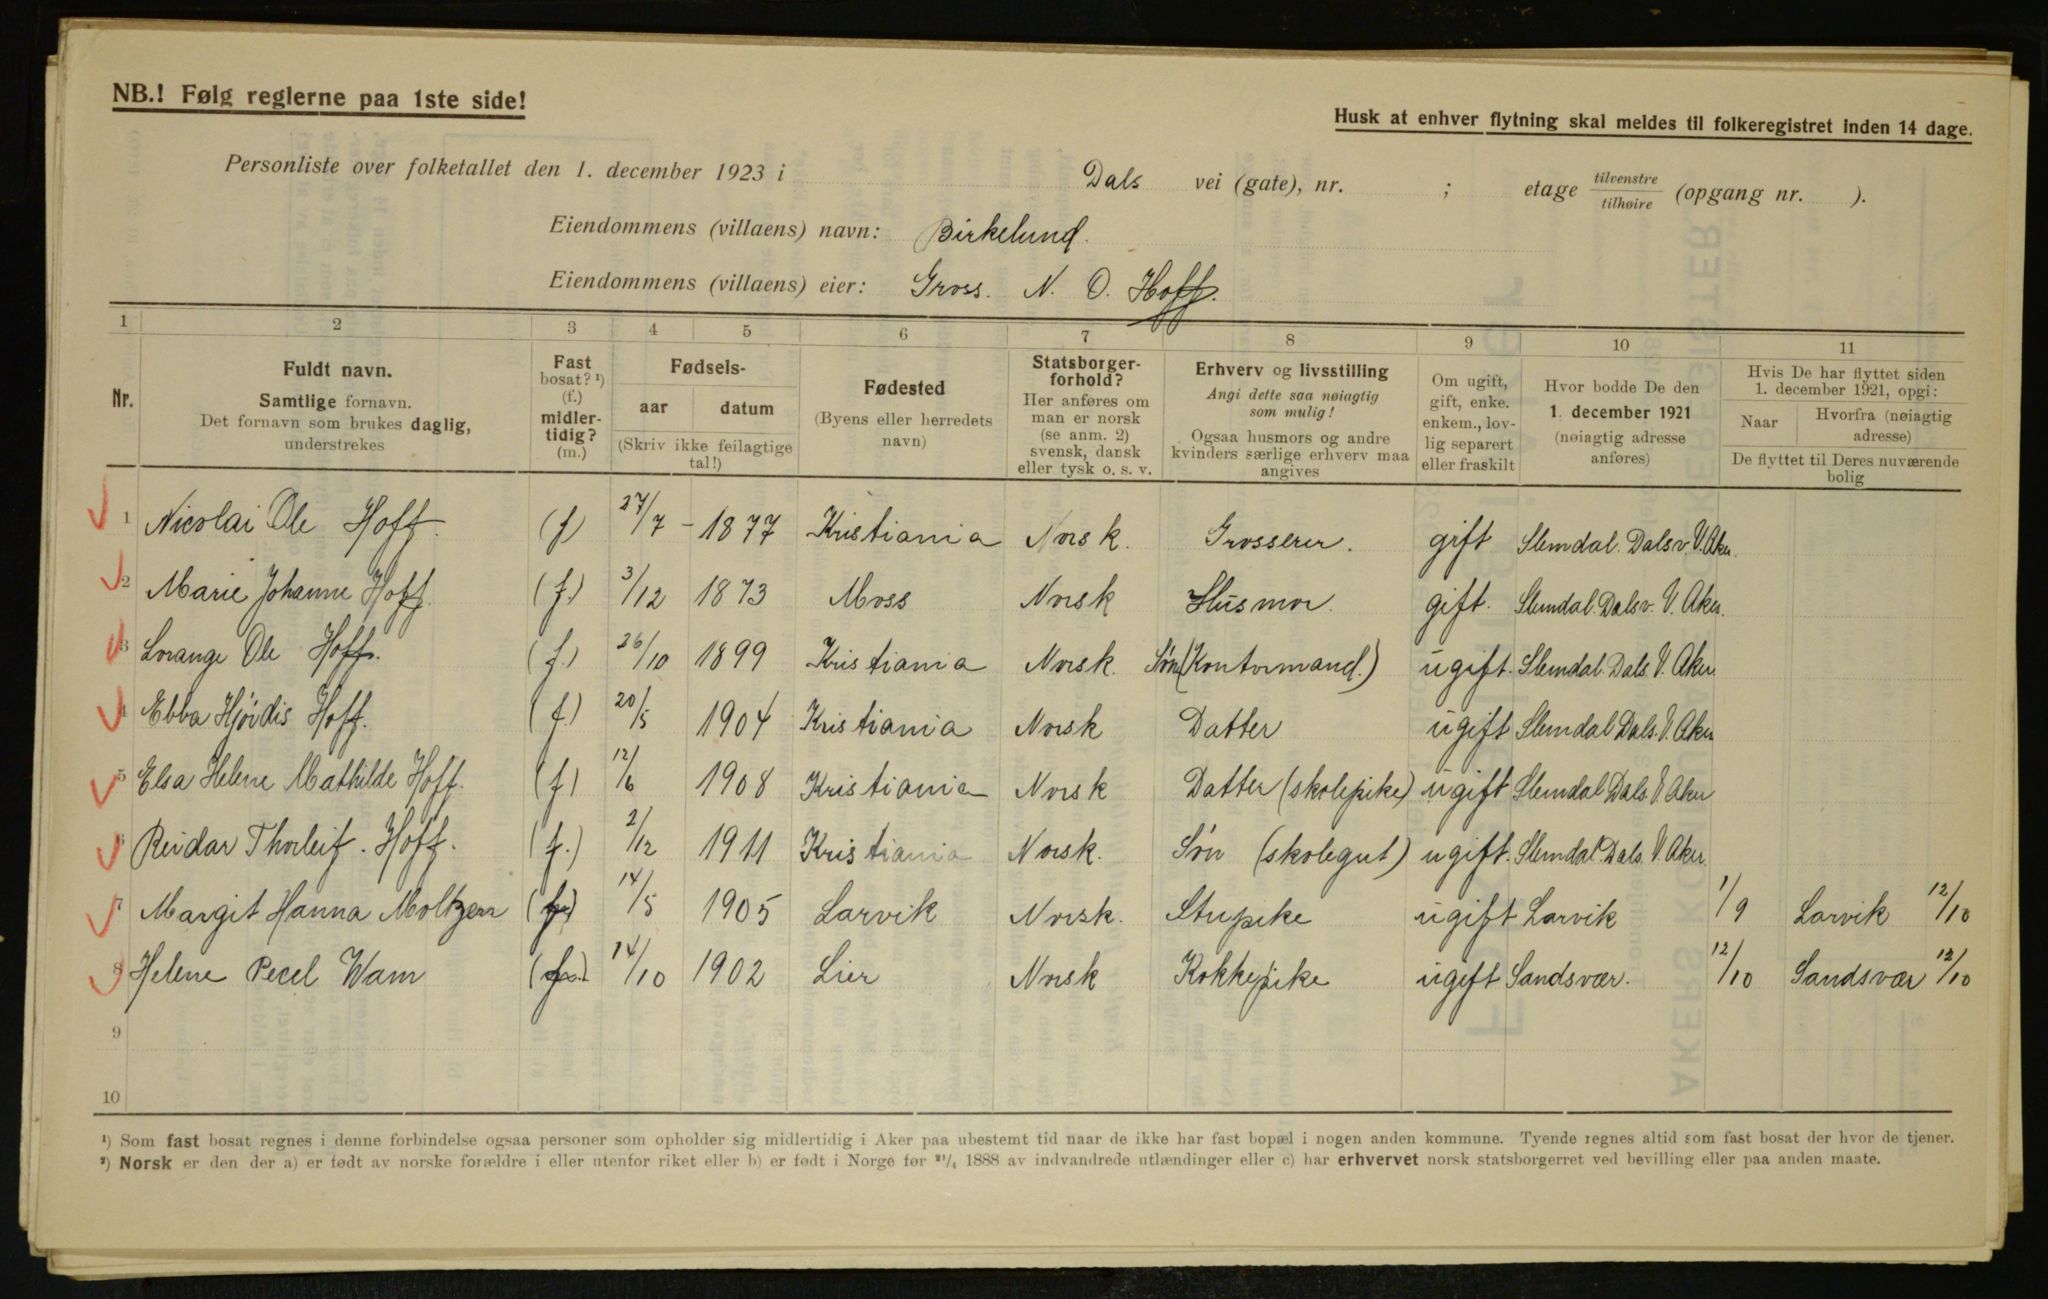 NB.! Følg reglerne paa 1ste side!
Husk at enhver flytning skal meldes til folkeregistret inden 14 dage.
Personliste over folketallet den 1. december 1923 i Dals vei (gate), nr. ; etage tilvenstre tilhøire (opgang nr. ).
Eiendommens (villaens) navn: Birkelund.
Eiendommens (villaens) eier: Gross. N. O. Hoff.
1 2 3 4 5 6 7 8 9 10 11
Nr.
Fuldt navn.
Samtlige fornavn.
Det fornavn som brukes daglig,
understrekes
Fast
bosat? ¹)
(f.)
midler-
tidig?
(m.)
Fødsels-
aar datum
(Skriv ikke feilagtige
tal!)
Fødested
(Byens eller herredets
navn)
Statsborger-
forhold?
Her anføres om
man er norsk
(se anm. 2)
svensk, dansk
eller tysk o. s. v.
Erhverv og livsstilling
Angi dette saa nøiagtig
som mulig!
Ogsaa husmors og andre
kvinders særlige erhverv maa
angives
Om ugift,
gift, enke.
enkem., lov-
lig separert
eller fraskilt
Hvor bodde De den
1. december 1921
(nøiagtig adresse
anføres)
Hvis De har flyttet siden
1. december 1921, opgi:
Naar Hvorfra (nøiagtig
adresse)
De flyttet til Deres nuværende
bolig
1 Nicolai Ole Hoff. (f) 27/7 - 1877 Kristiania Norsk. Grosserer. gift Slemdal. Dalsv. V. Aker.
2 Marie Johanne Hoff. (f.) 3/12 1873 Moss Norsk Husmor. gift. Slemdal. Dalsv. V. Aker.
3 Lorange Ole Hoff. (f.) 26/10 1899 Kristiania Norsk. Søn (Kontormand.) ugift. Slemdal. Dals. V. Aker.
4 Ebba Hjørdis Hoff. (f.) 20/5 1904 Kristiania Norsk Datter ugift Slemdal Dals. V. Aker
5 Elsa Helene Mathilde Hoff. (f) 12/6 1908 Kristiania Norsk Datter (skolepike) ugift Slemdal Dals. V. Aker
6 Reidar Thorleif. Hoff. (f.) 2/12 1911 Kristiania Norsk. Søn (skolegut) ugift. Slemdal. Dals. V. Aker.
7 Margit Hanna Moltzen 14/5 1905 Larvik Norsk. Stupike ugift Larvik 1/9 Larvik 12/10
8 Helene Pecel Wam 14/10 1902 Lier Norsk Kokkepike ugift Sandsvær. 12/10 Sandsvær 12/10
9
10
¹) Som fast bosat regnes i denne forbindelse ogsaa personer som opholder sig midlertidig i Aker paa ubestemt tid naar de ikke har fast bopæl i nogen anden kommune. Tyende regnes altid som fast bosat der hvor de tjener.
²) Norsk er den der a) er født av norske forældre i eller utenfor riket eller b) er født i Norge før ²¹/₄ 1888 av indvandrede utlændinger eller c) har erhvervet norsk statsborgerret ved bevilling eller paa anden maate.